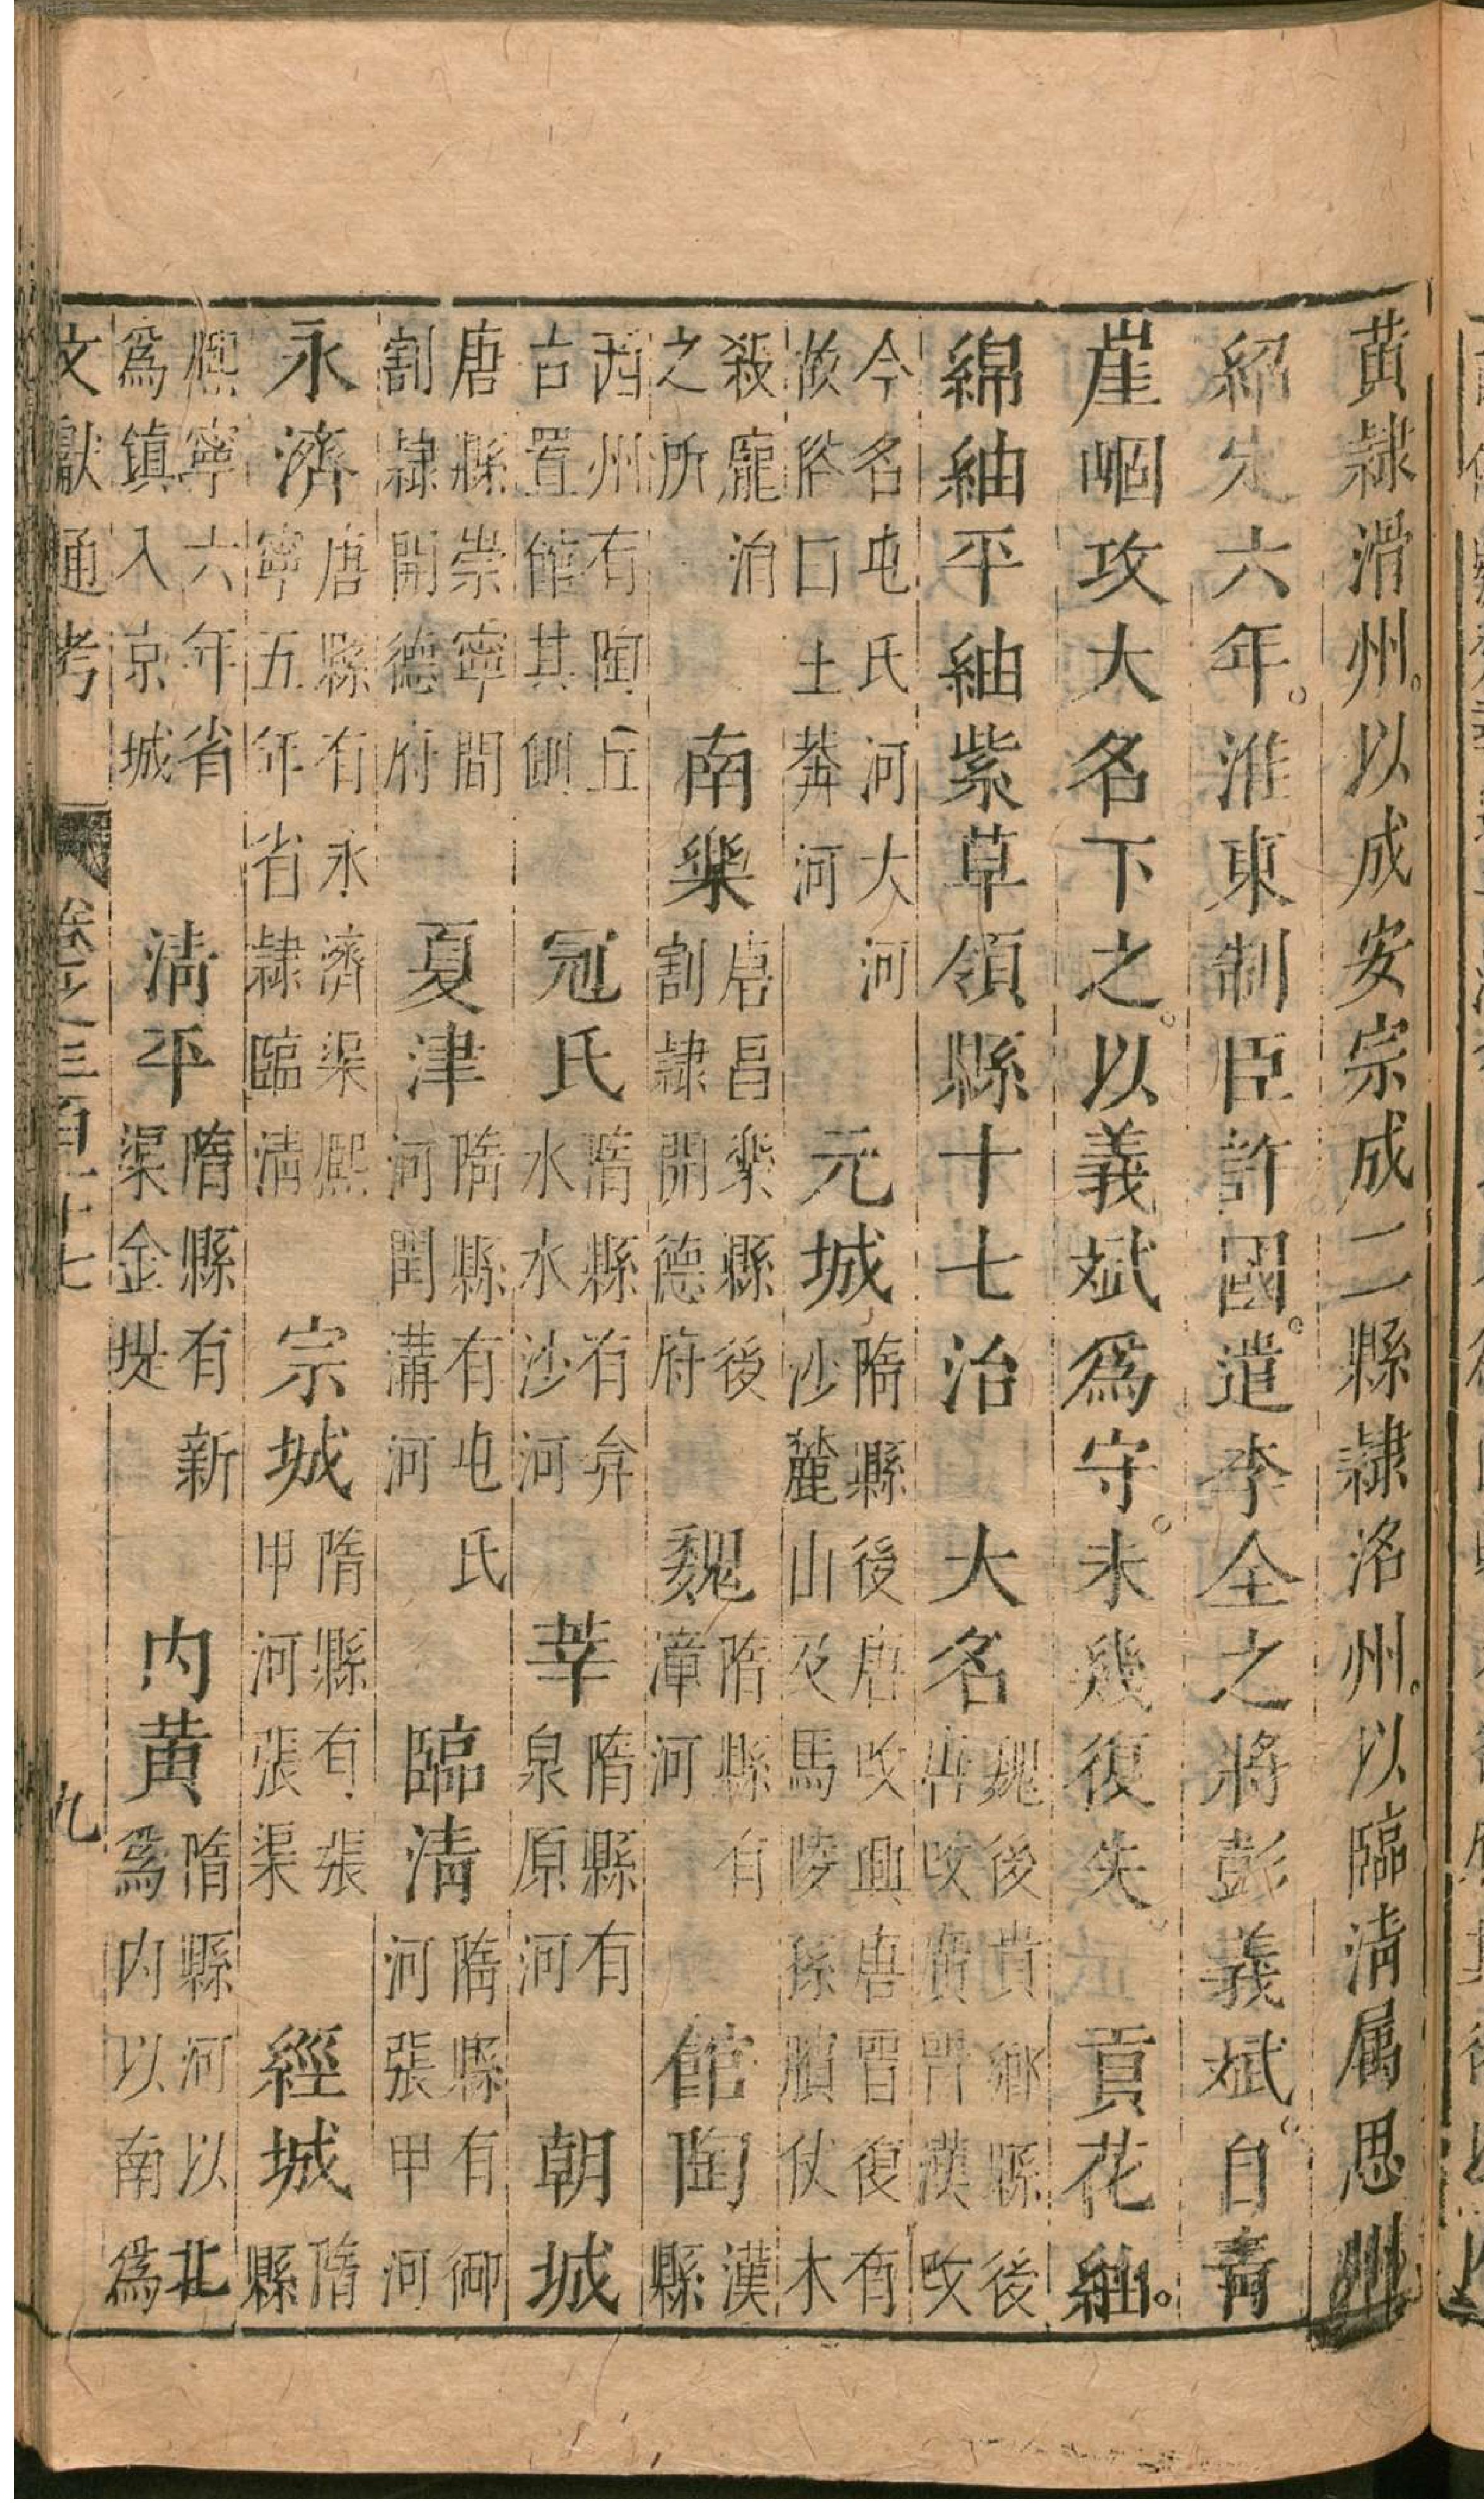 黃隷滑州。以成安宗成二縣隷洺州。以臨清属思州
紹定六年。淮東制臣許國。遣李全之將彭義斌。自青
崖崓攻大名下之。以義斌爲守。未幾復失。 貢花紬。
綿紬平紬紫草領縣十七治 大名 魏後貴鄉縣後唐改廣晋漢改
今名屯氏河大河故俗曰王莽河 元城 隋縣後唐改興唐晉復有沙麓山及馬陵孫臏伏木
殺龐涓之所 南樂 唐昌樂縣後割隷開德府 魏 隋縣有漳河 館陶 漢縣
西州有陶丘古置館其側 冠氏 隋縣有弇水水沙河 莘 隋縣有泉原河 朝城
唐縣崇寧間割隷開德府 夏津 隋縣有屯氏河閏溝河 臨清 隋縣有御河張甲河
永濟 唐縣有永濟渠熈寧五年省隷臨清 宗城 隋縣有張甲河張渠 經城 隋縣
熈寧六年省爲鎮入京城 清平 隋縣有新渠金堤 内黄 隋縣河以北爲内以南爲
文獻通考 卷之三百一十七 九